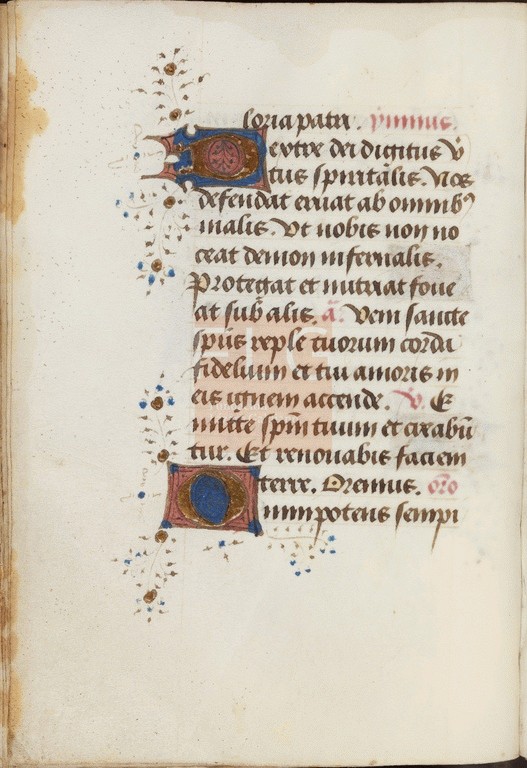 loria patri. ymnus.
Dextre dei digitus v̾
tus spiritalis. Nos
defendat eruat ab omnib⁹
malis. Vt nobis non no
ceat demon infernalis.
Protegat et nutriat foue
at sub alis. a. Veni sancte
sp̄us reple tuorum corda
fidelium et tui amoris in
eis ignem accende. v. E
mitte sp̄m tuum et creabū
tur. Et renouabis faciem
terre. Oremus. or̄o
Omnipotens sempi